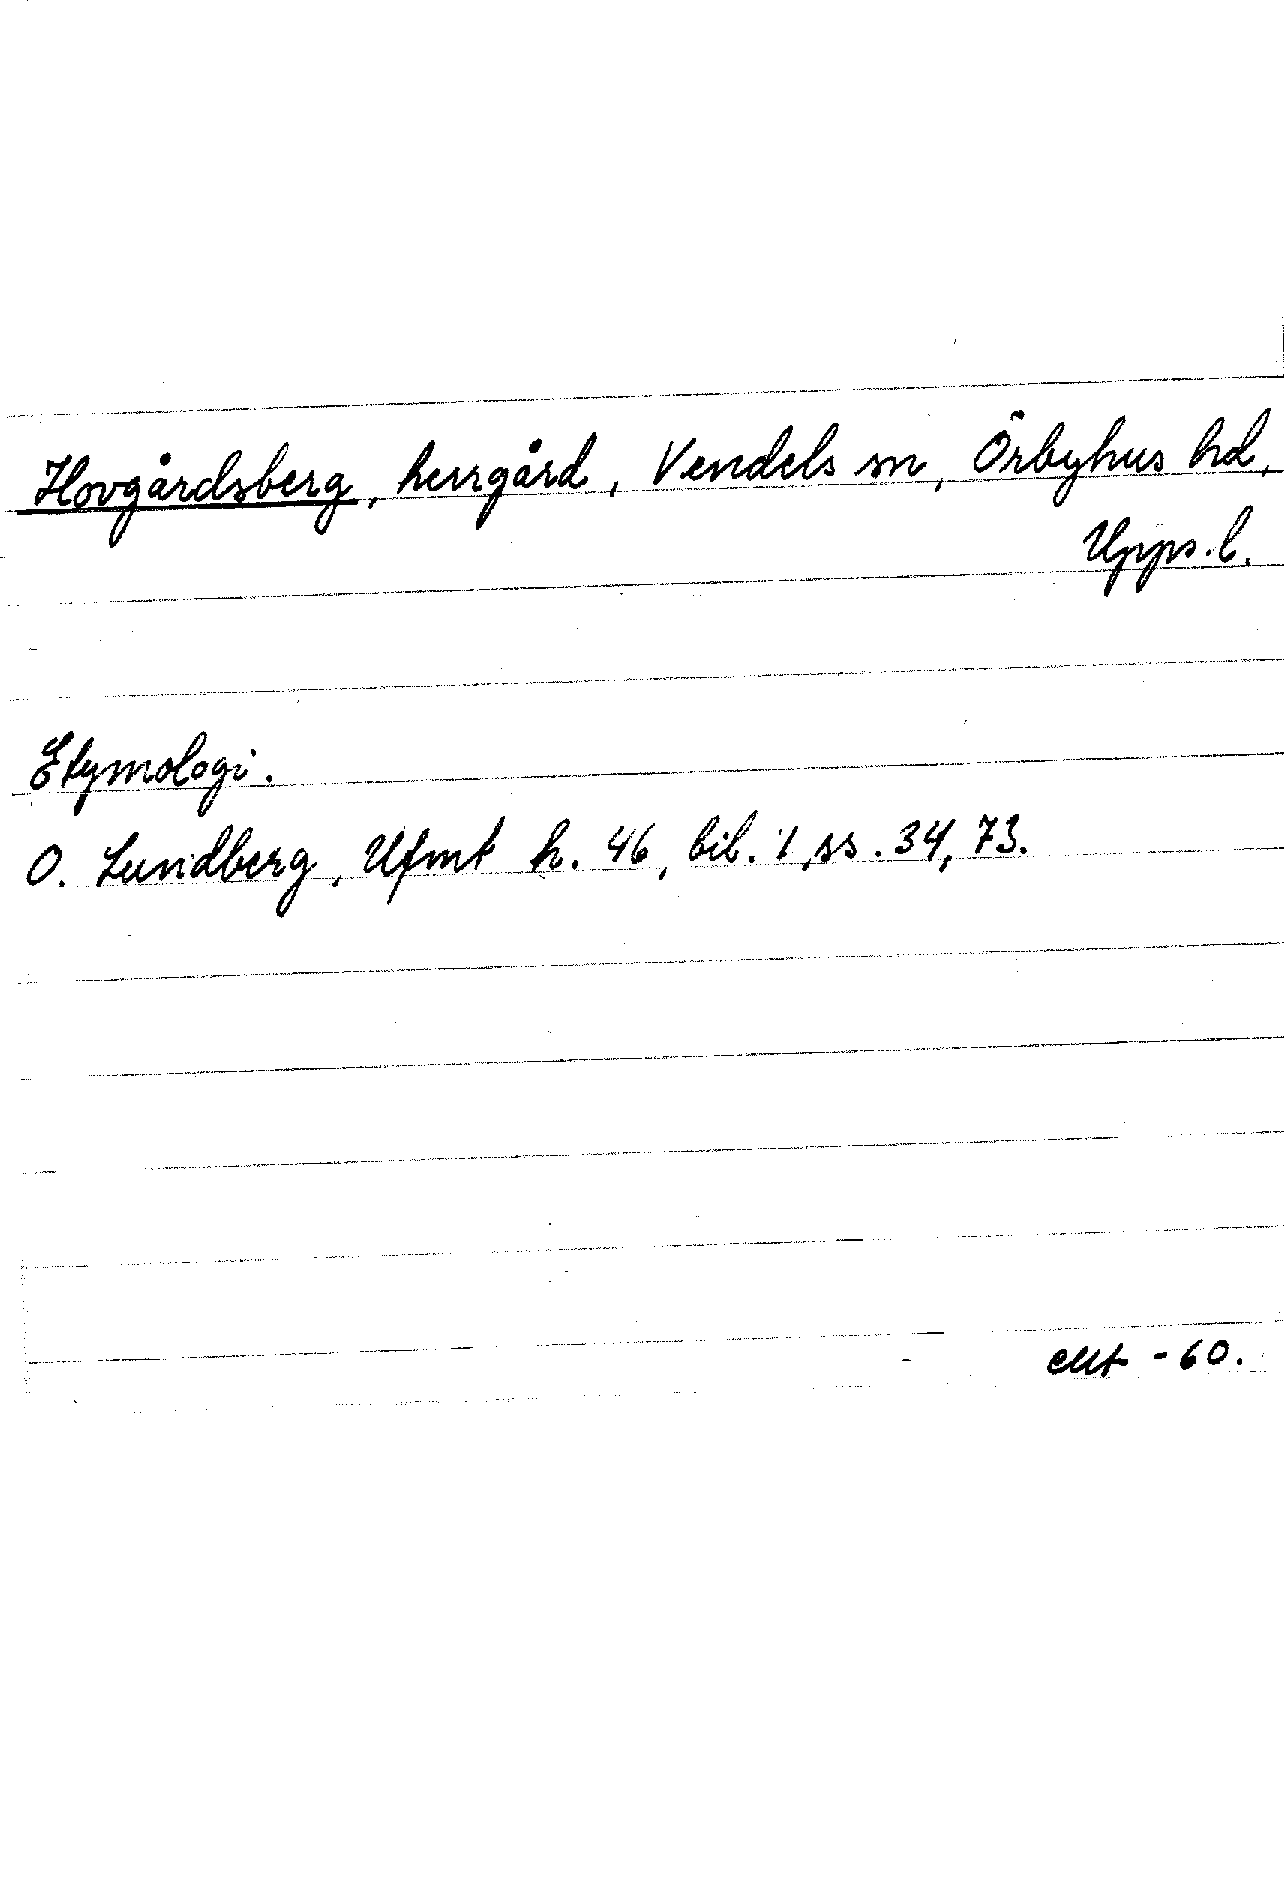 Hovgårdsberg, herrgård, Vendels sn, Örbyhus hd,
Upps. l.
Etymologi.
O. Lundberg, Ufmt h. 46, bil. 1, ss. 34, 73.
-60.